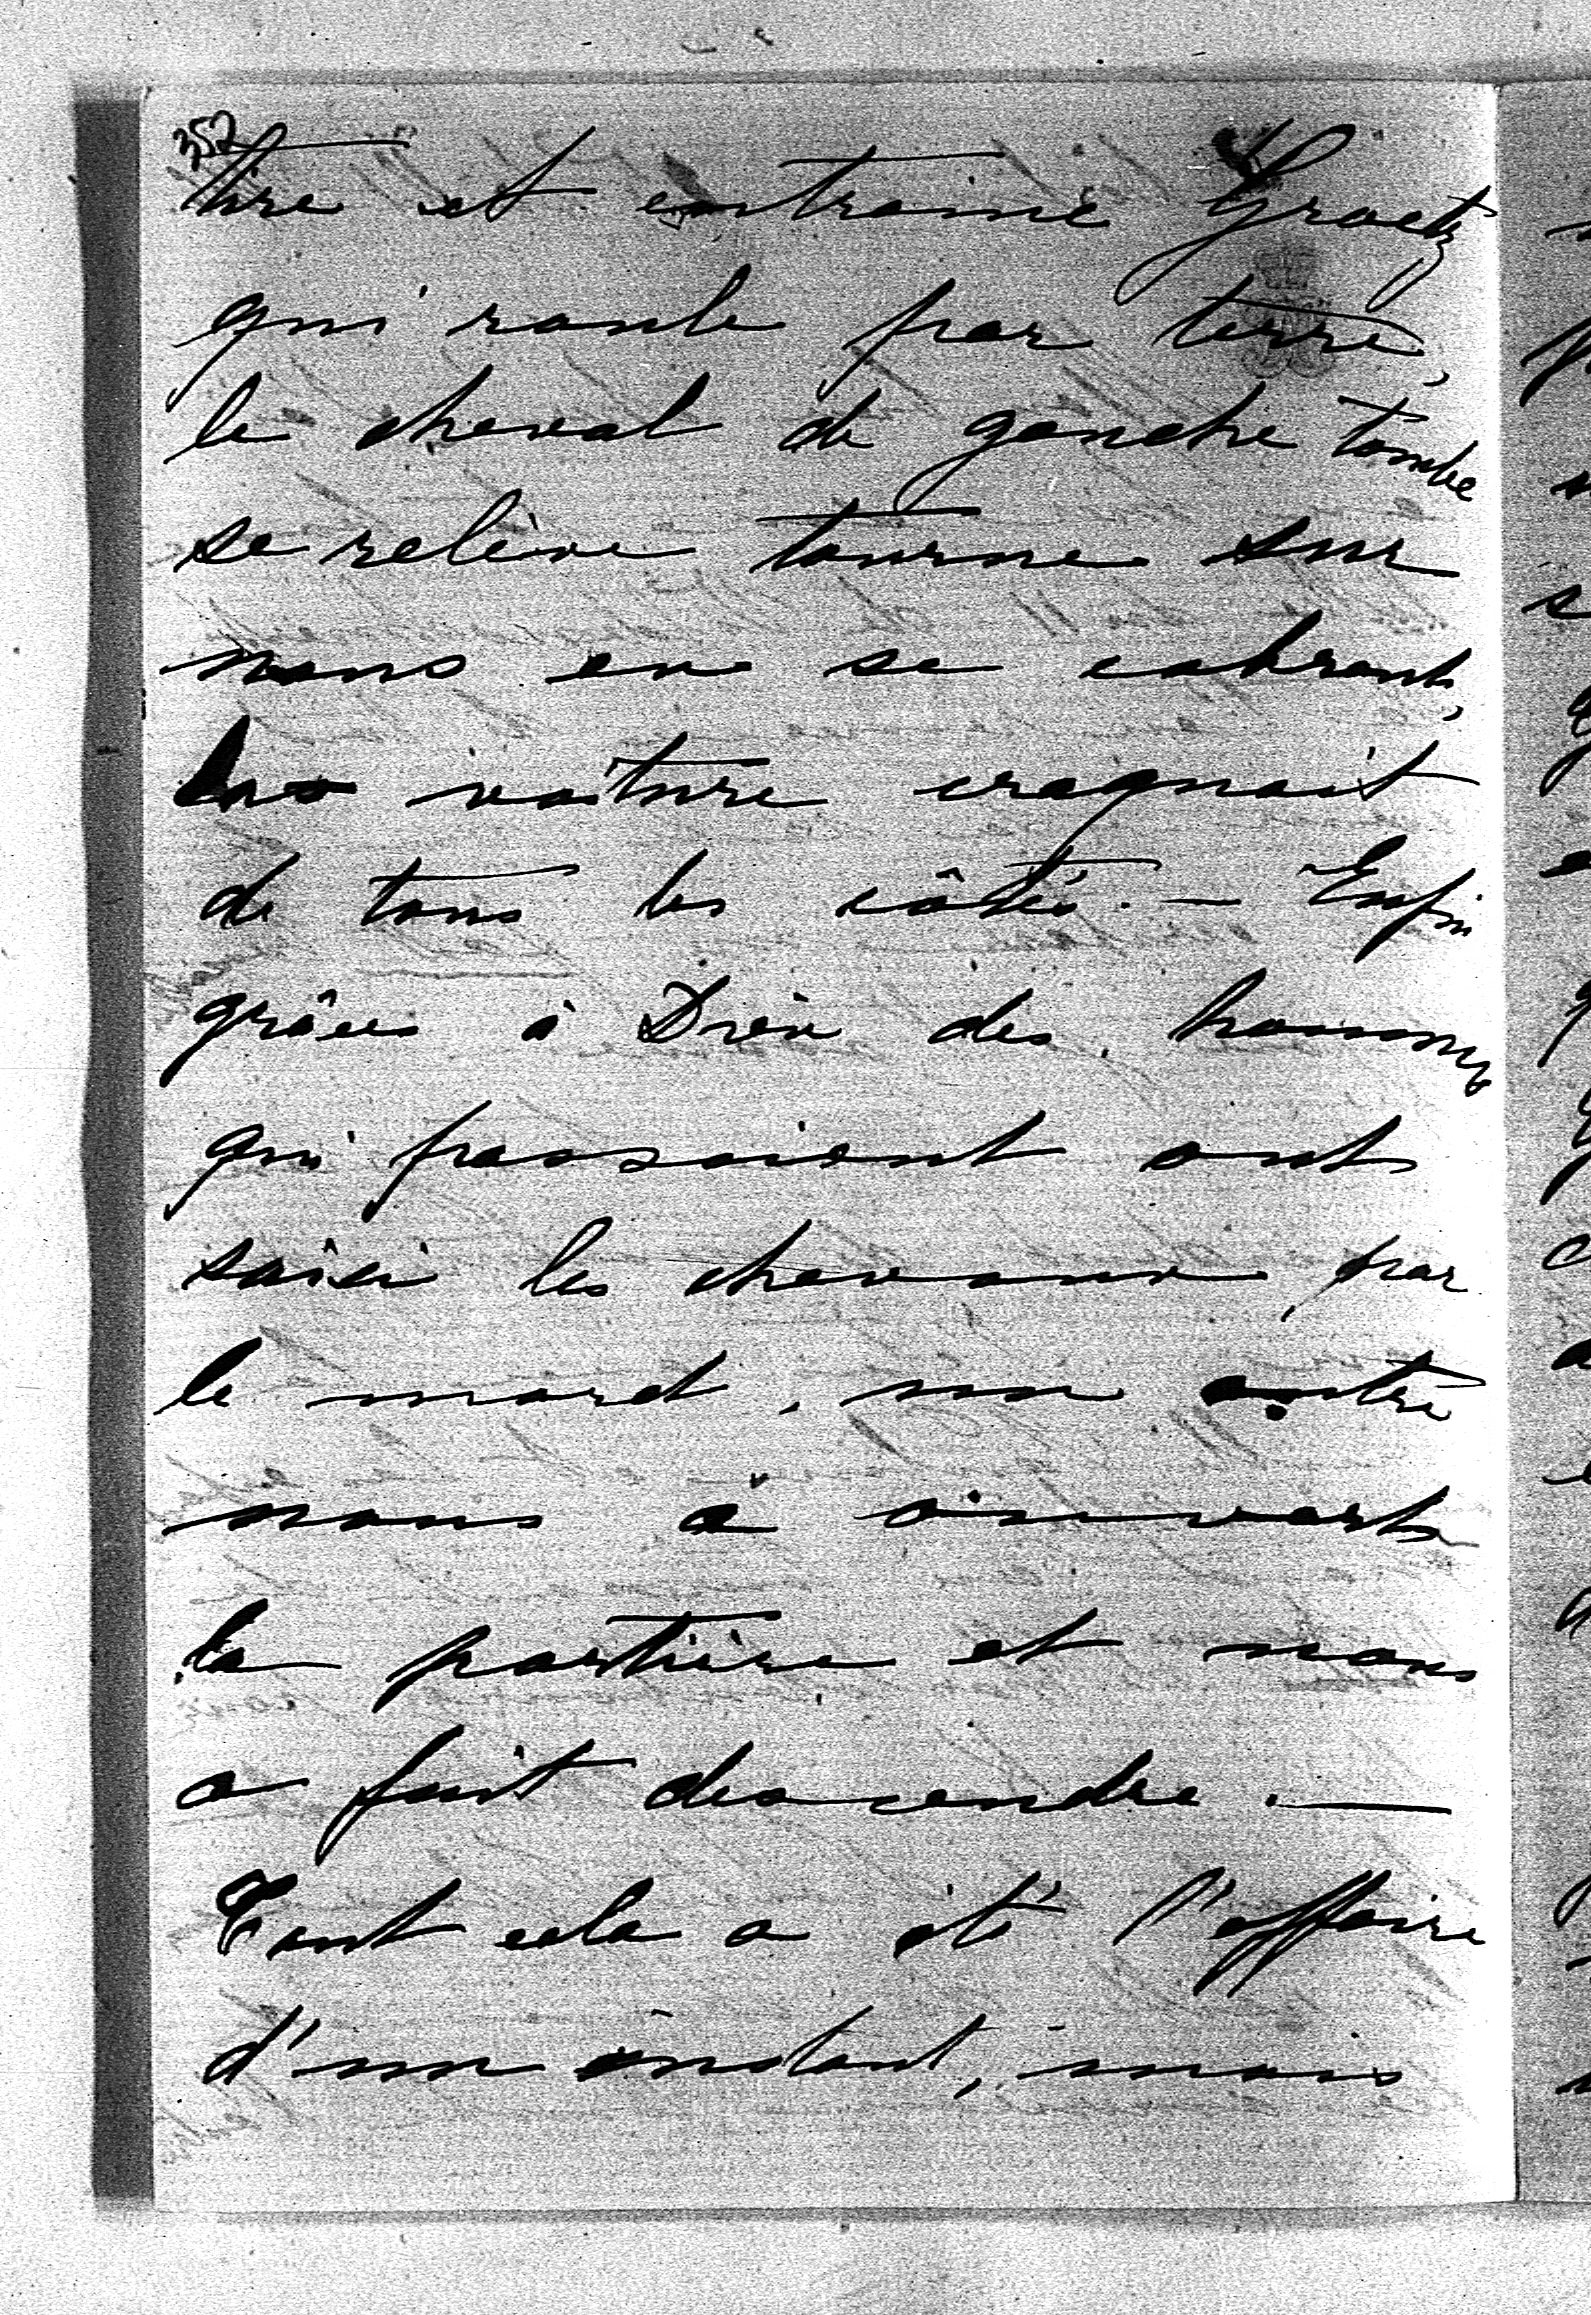 352
tire et entraine Graetz
qui roule par terre,
le cheval de gauche tombe
se relève tourne sur
nous en se cabrant,
la voiture craquait
de tous les côtés. — Enfin
grâce à Dieu des hommes
qui passaient ont
saisi les chevaux par
le mord, un autre
nous a ouvert
la portière et nous
a fait descendre. —
Tout cela a été l'affaire
d'un instant, mais